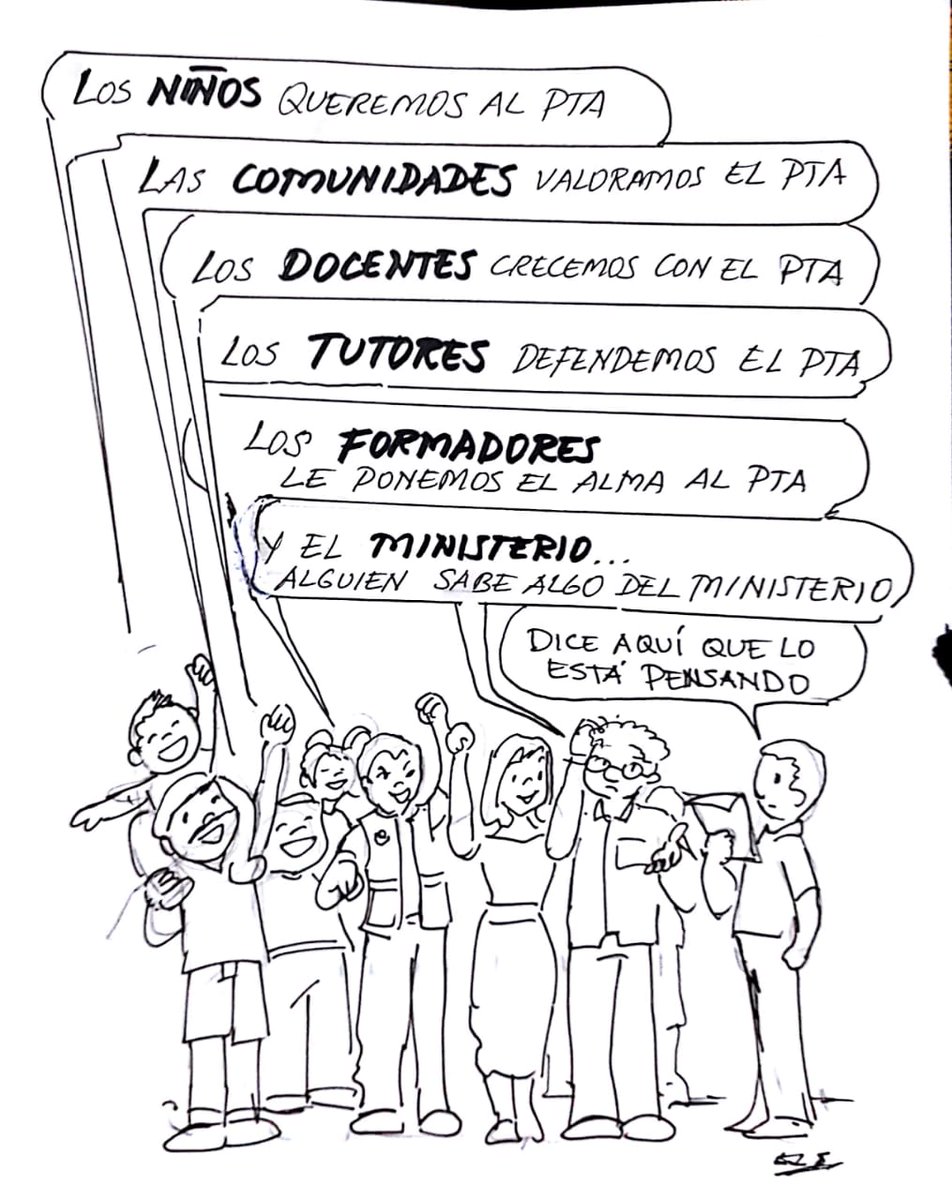 LOS NIÑOS QUEREMOS AL PTA
LAS COMUNIDADES VALORAMOS EL PTA
LOS DOCENTES CRECEMOS CON EL PTA
LOS TUTORES DEFENDEMOS EL PTA
LOS FORMADORES
LE PONEMOS EL ALMA AL PTA
Y EL MINISTERIO...
ALGUIEN SABE ALGO DEL MINISTERIO
DICE AQUÍ QUE LO
ESTÁ PENSANDO